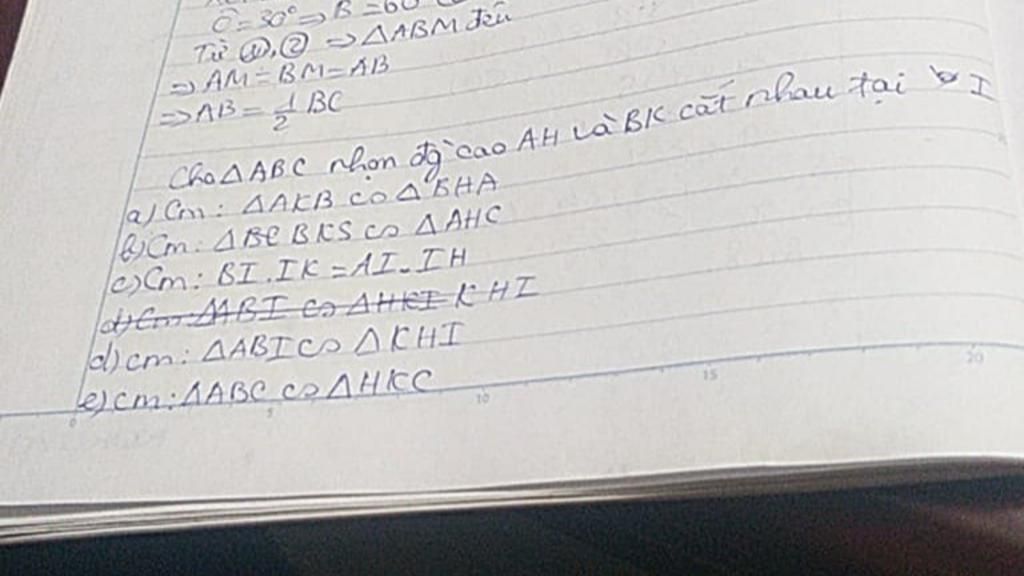 C = 30° ⇒ B = 60
Từ ①, ② ⇒ △ABM đều
⇒ AM = BM = AB
⇒ AB = 1/2 BC
Cho △ABC nhọn đg cao AH và BK cắt nhau tại I
a) Cm: △AKB ∽ △BHA
b) Cm: △BC BKS ∽ △AHC
c) Cm: BI.IK = AI.IH
d) Cm: △ABI ∽ △HKI KHI
d) cm: △ABI ∽ △KHI
e) cm: △ABC ∽ △HKC
0 5 10 15 20